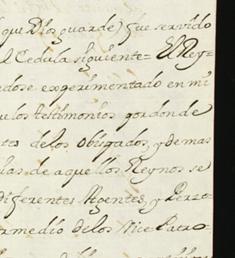 que Dios guarde) fue servido
l Cedula siguiente = El Rey =
dose experimentado en mi
los testimonios por donde
to delos Obligados, y demas
ias de aquellos Reynos se
diferentes Agentes, y Perso-
rmedio delos Vice Patro-